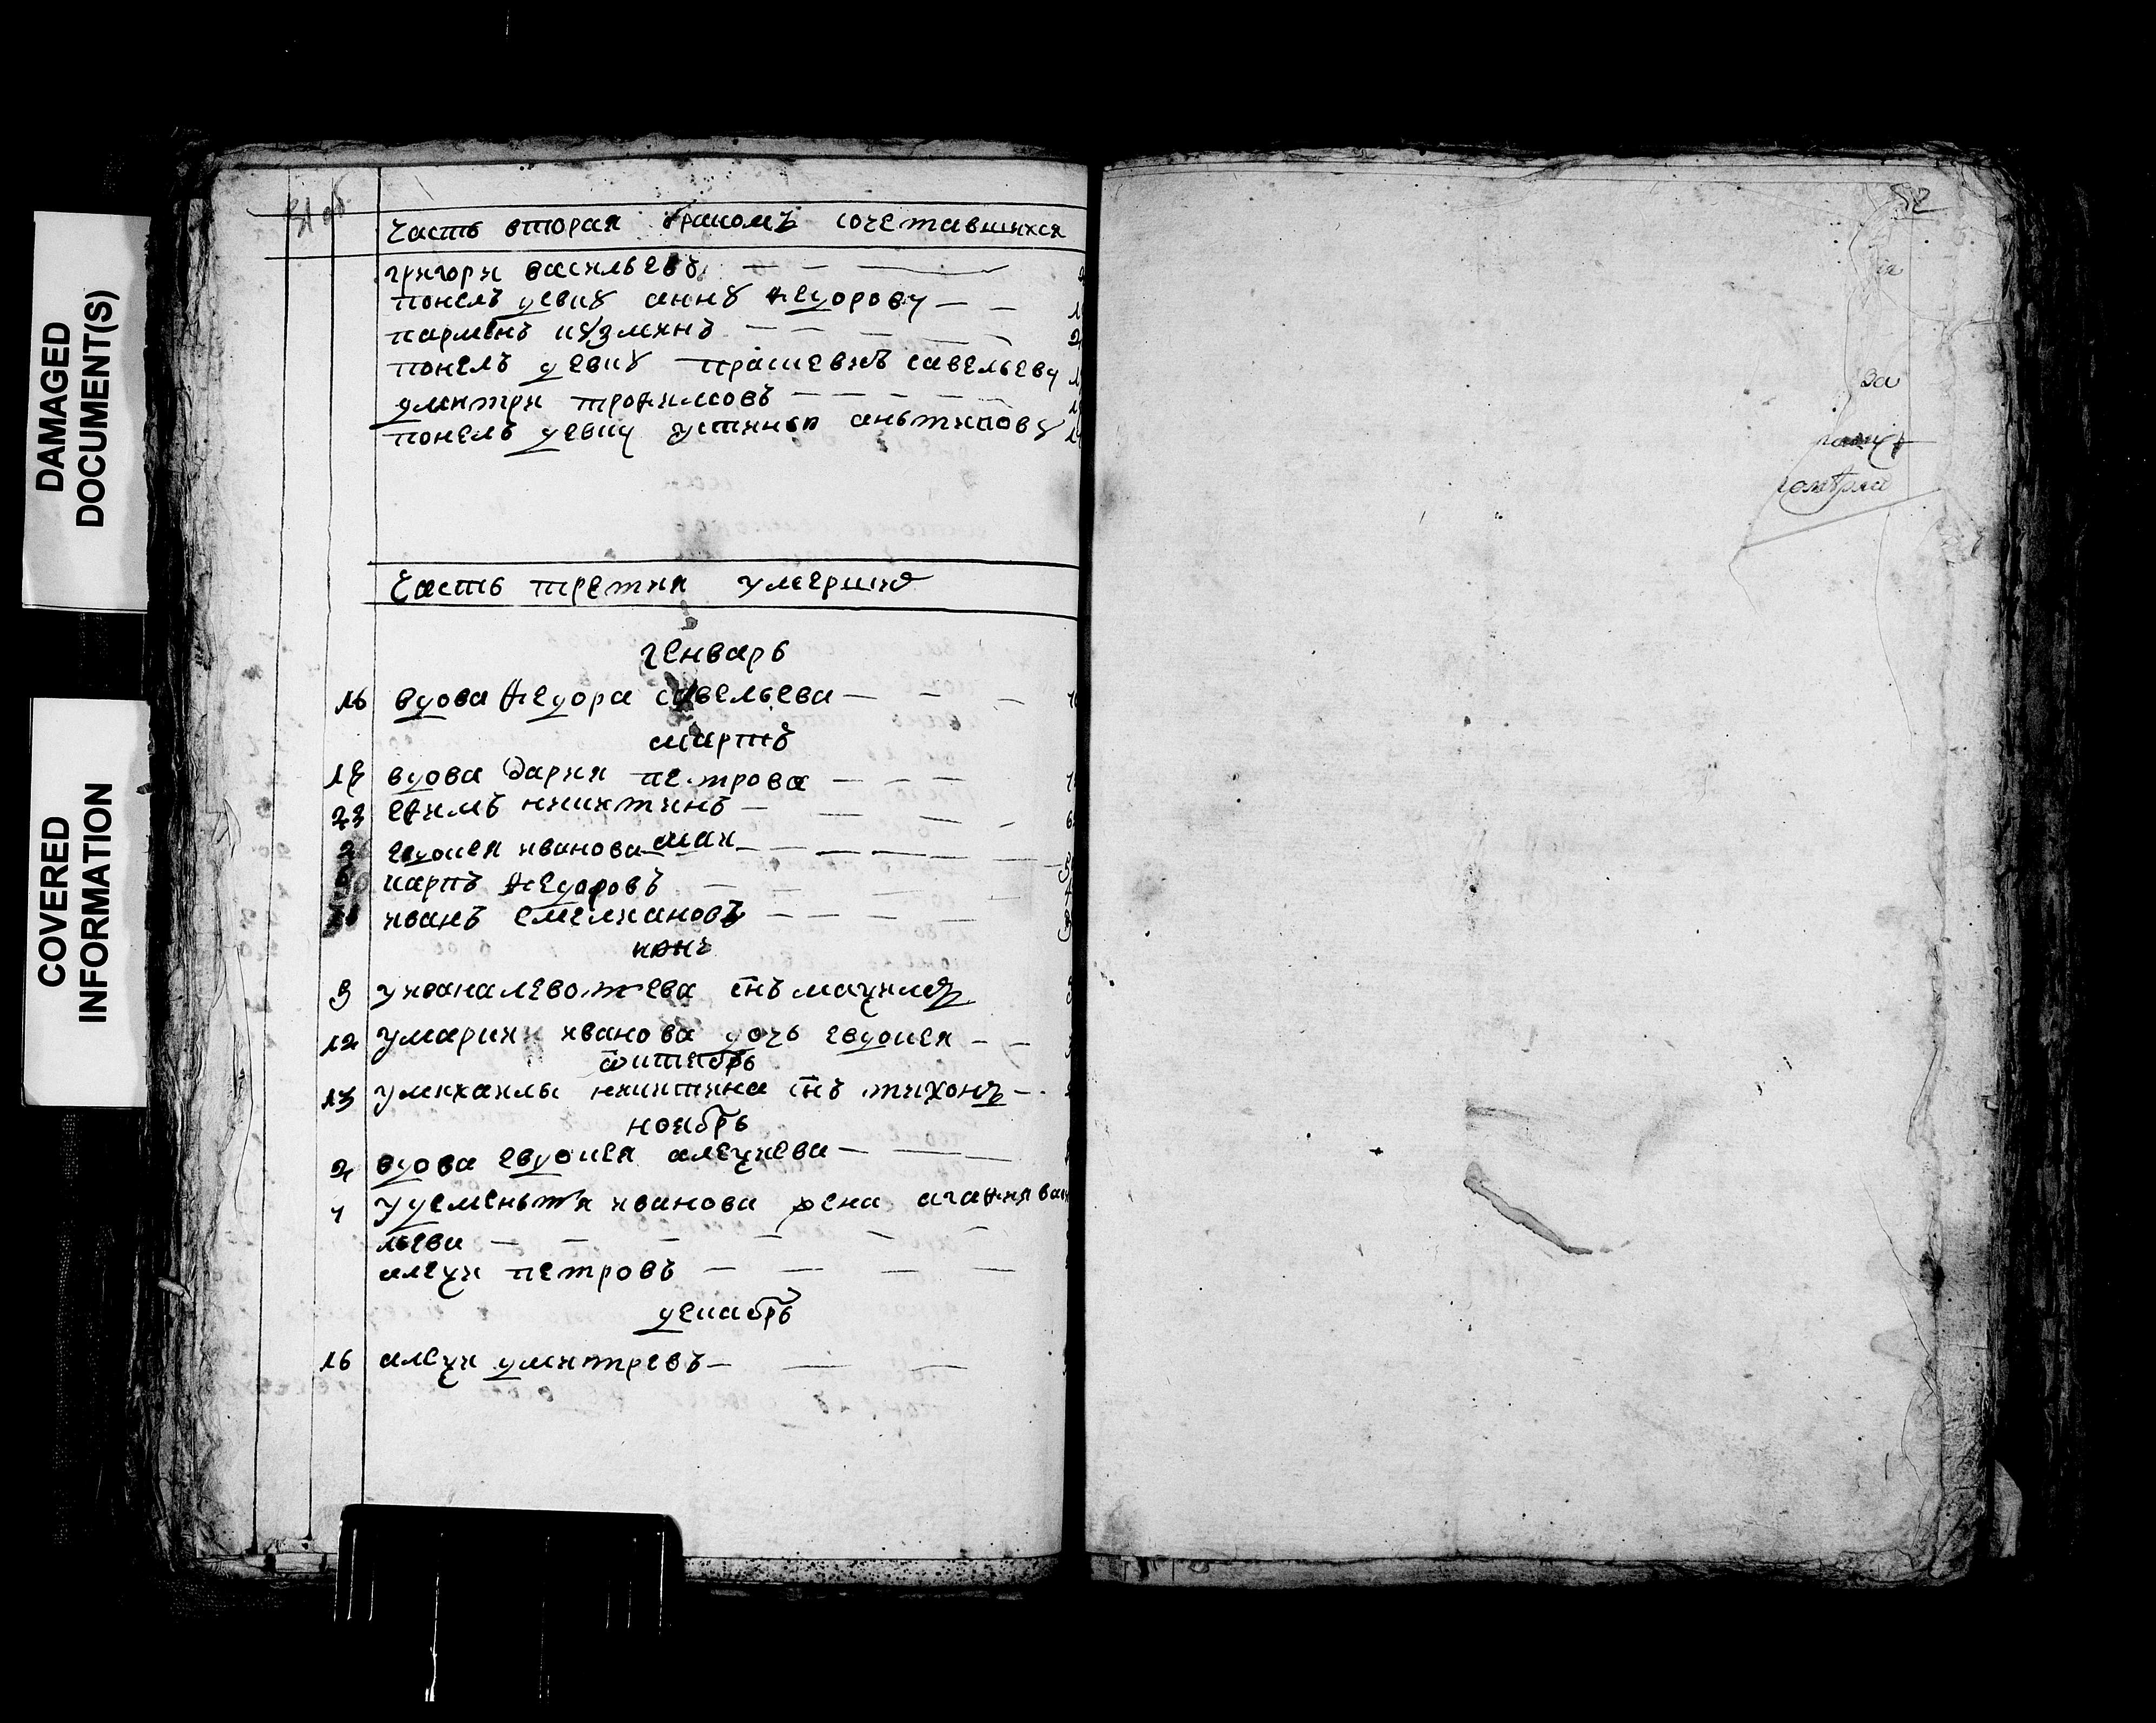 DAMAGED
DOCUMENT(S)
COVERED
INFORMATION
31 об
Часть вторая бракомъ сочетавшихся
григори васильевъ
понелъ девку анну федорову
парменъ кузминъ
понелъ девку прасцевию савельеву
дмитри трофимовъ
понелъ девку устинью аньтипову
Часть третия умершия
генварь
16 вдова федора савельева
мартъ
17 вдова Дария петрова
23 ефимъ никитинъ
2 евдокея иванова маи
карпъ федоровъ
иванъ емелиановъ
июнь
9 у ивана левонтева снъ
12 у марии иванова дочь евдокея
октебрь
13 у михаилы никитина снъ тихонъ
ноябрь
2 вдова евдокея алеѯиева
у дементия иванова жена агафия васи
льева
алеѯи петровъ
декабрь
16 алеѯи дмитревъ
52
за